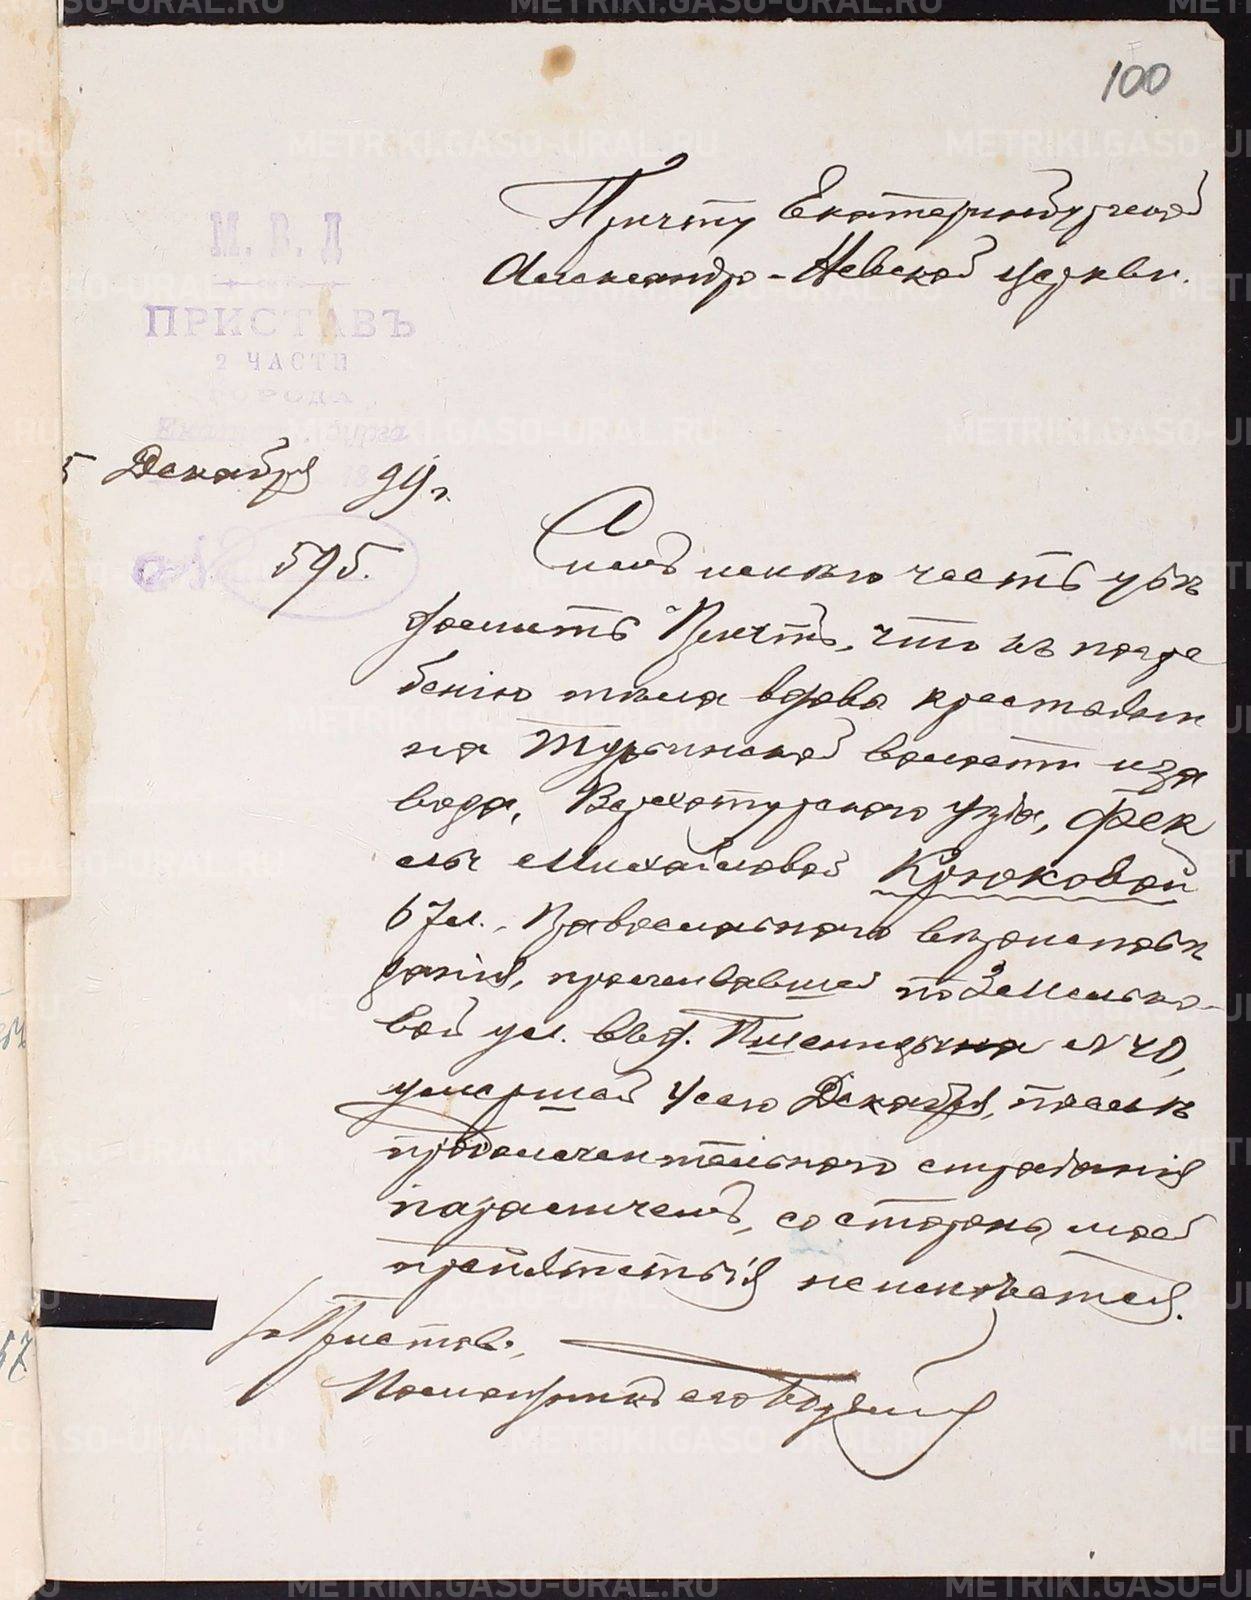 100
Причту Екатеринбургской
Александро-Невской церкви.
М. В. Д
ПРИСТАВЪ
2 ЧАСТИ
ГОРОДА
Екатеринбурга
5 Декабря 1899 г.
№ 595.
Симъ имѣю честь увѣ
домить Причтъ, что къ погре
бенію тѣла вдовы крестьяни
на Турьинской волости и за
вода, Верхотурскаго уѣзда, Фек
лы Михайловой Крюковой
67 л., Православнаго вѣроисповѣ
данія, проживавшей по
вой ул. въ д. № 40,
умершей 4 сего Декабря, послѣ
продолжительнаго страданія
параличемъ, со стороны моей
препятствія не имѣется.
За Пристава,
Помощникъ его
METRIKI.GASO-URAL.RU